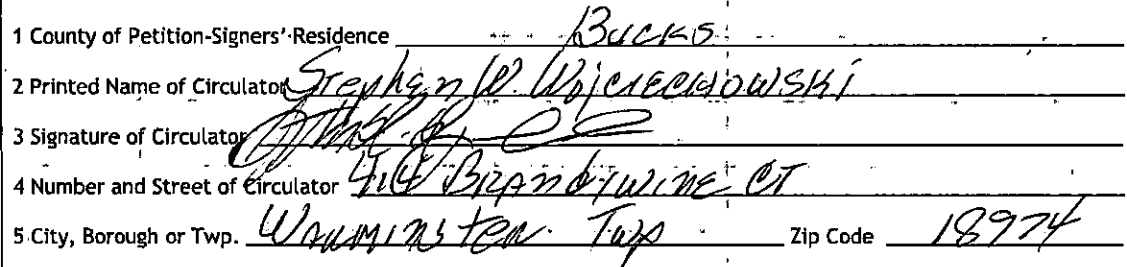 1 County of Petition-Signers' Residence Bucks
2 Printed Name of Circulator Stephen W. Wojciechowski
3 Signature of Circulator
4 Number and Street of Circulator Brandywine CT
5 City, Borough or Twp. Warminster Twp Zip Code 18974